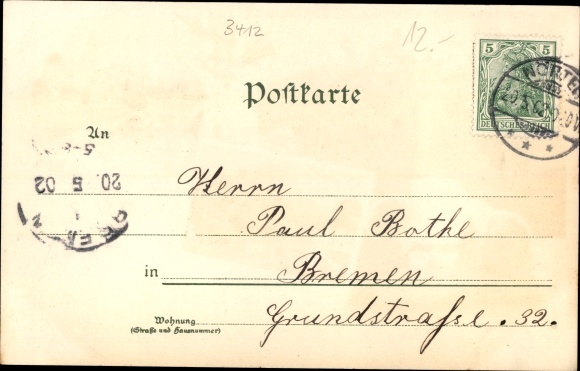 3412
12.-
5 5
DEUTSCHES REICH
NÖRTEN
Postkarte
An
20. 5 02
Herrn
Paul Bothe
in Bremen
Wohnung
(Straße und Hausnummer)
Grundstraße . 32.